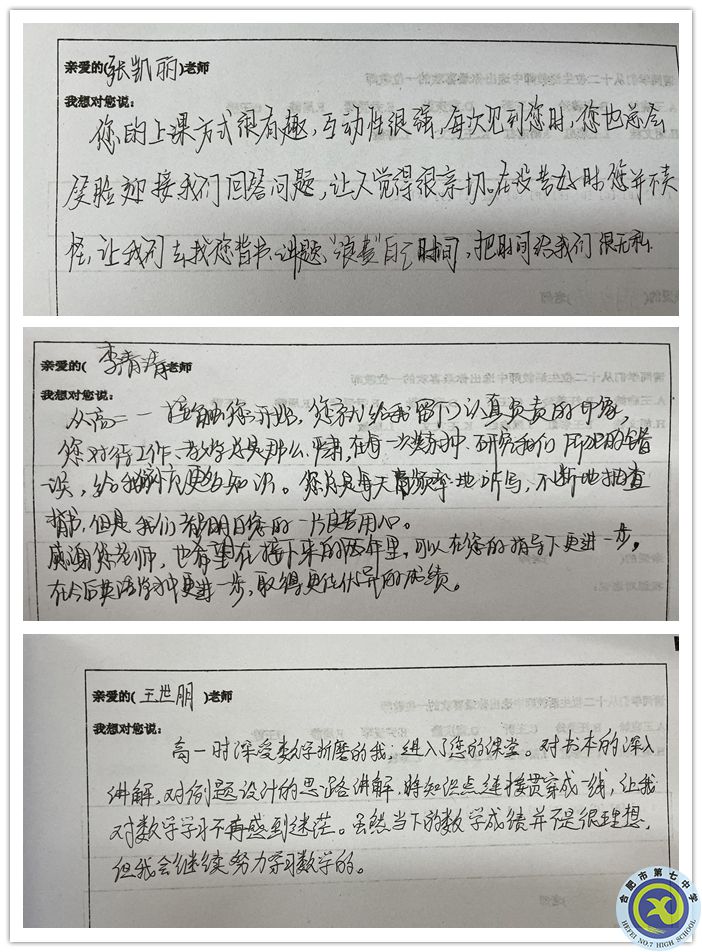 亲爱的(张凯丽)老师
我想对您说：
您的上课方式很有趣，互动性很强，每次见到您时，您也总会
笑脸迎接我们回答问题，让人觉得很亲切。在没背好时，您并不责
怪，让我们去找您背书、讲题，“浪费”自己时间，把时间给我们，很无私.
亲爱的(李青清)老师
我想对您说：
从高二一接触您开始，您就给我留下认真负责的印象，
您对待工作、教学总是那么严肃，在每一次教学中，研究我们所犯的错
误，给我们的知识。您总是每天高频率地听写，不断地抽查
背书，但是我们都明白您的一片良苦用心。
感谢您老师，也希望在接下来的两年里，可以在您的指导下更进一步，
在今后英语学习中更进一步，取得更优异的成绩。
亲爱的(王世朋)老师
我想对您说：
高一时深受数学折磨的我，进入了您的课堂。对书本的深入
讲解，对例题设计的思路讲解，将知识点连接贯穿成一线，让我
对数学学习不再感到迷茫。虽然当下的数学成绩并不是很理想，
但我会继续努力学习数学的。
合肥市第七中学
HEFEI NO.7 HIGH SCHOOL